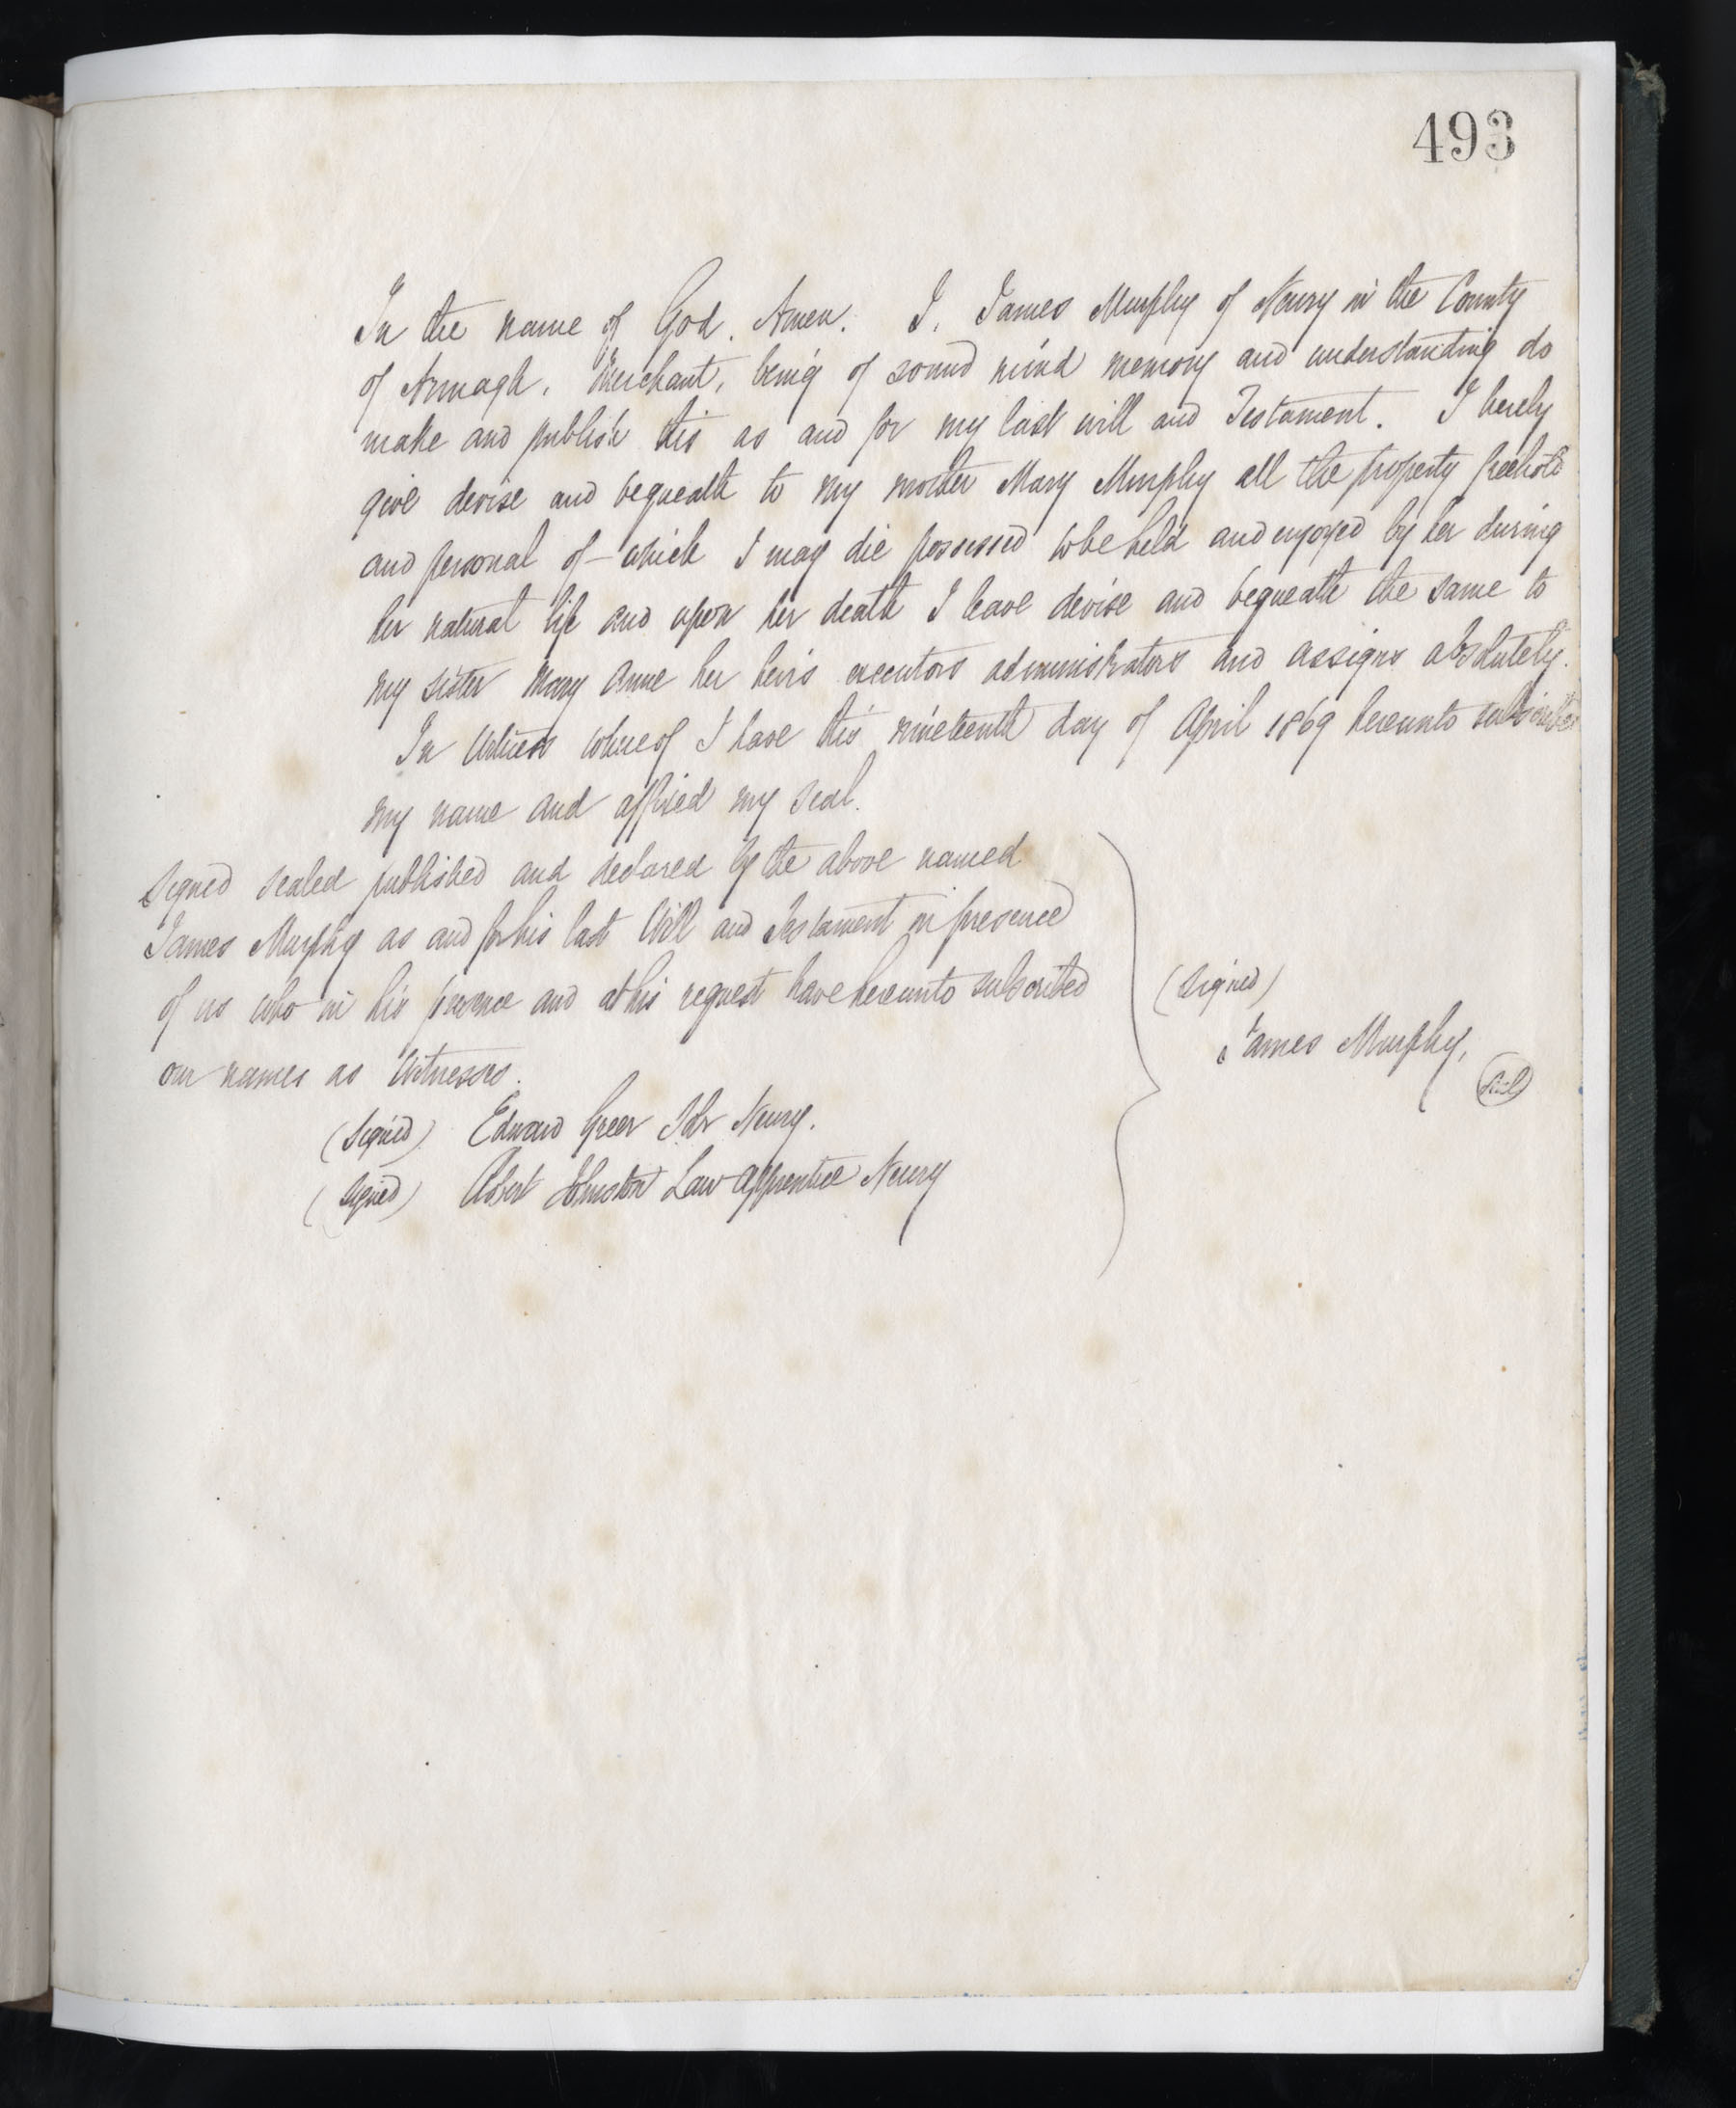 493
In the name of God. Amen. I, James Murphy of Newry in the County
of Armagh, Merchant, being of sound mind memory and understanding do
make and publish this as and for my last will and Testament. I hereby
give devise and bequeath to my mother Mary Murphy all the property freehold
and personal of which I may die possessed to be held and enjoyed by her during
her natural life and upon her death I leave devise and bequeath the same to
my sister Mary Anne her heirs executors administrators and assigns absolutely.
In Witness whereof I have this nineteenth day of April 1869 hereunto subscribed
my name and affixed my seal.
Signed sealed published and declared by the above named
James Murphy as and for his last Will and Testament in presence
of us who in his presence and at his request have hereunto subscribed
our names as Witnesses.
(signed)
James Murphy,
Seal
(signed) Edward Greer Solr Newry.
(signed) Robert Johnston Law Apprentice Newry